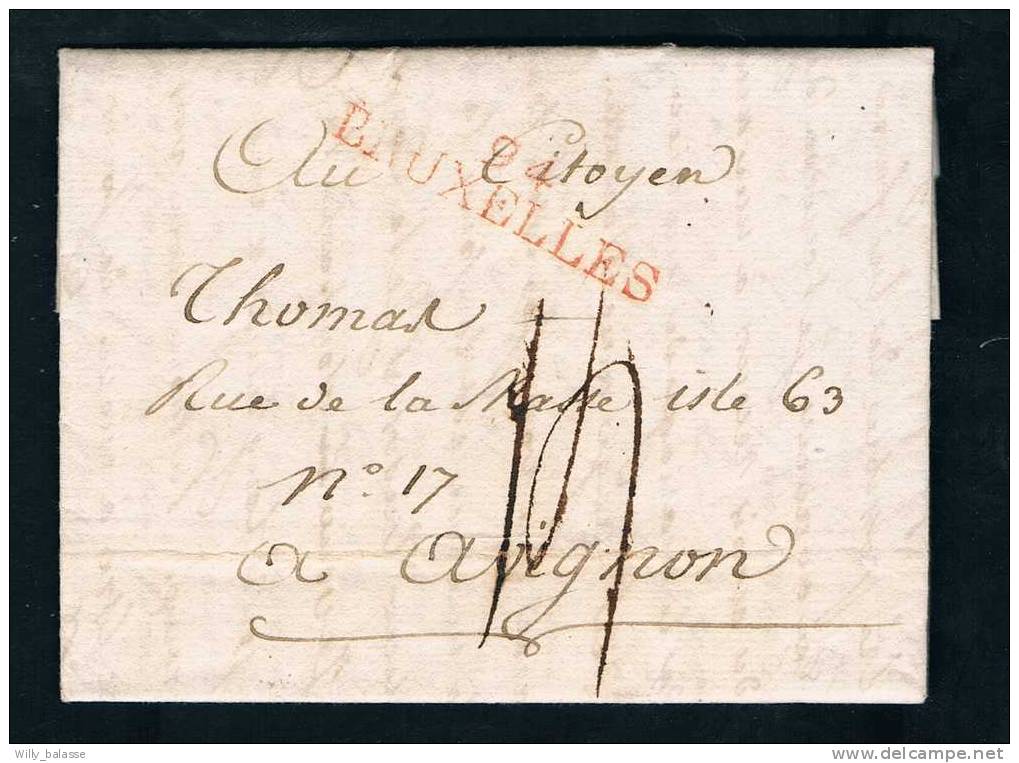 94
BRUXELLES
Au Citoyen
Thomas
Rue de la Masse isle 63
n.° 17
a avignon
Willy_balasse
delcampe.net